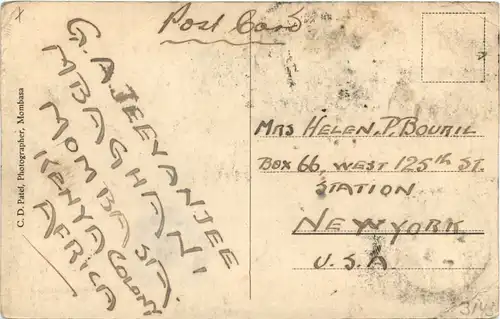 x
Post Card
G. A. JEEVANJEE
MBAGHANI
MOMBASA.
KENYA COLONY
AFRICA
C. D. Patel, Photographer, Mombasa
MRS HELEN. P. BOURIL
BOX 66, WEST 125th ST.
STATION
NEW YORK
U. S. A.